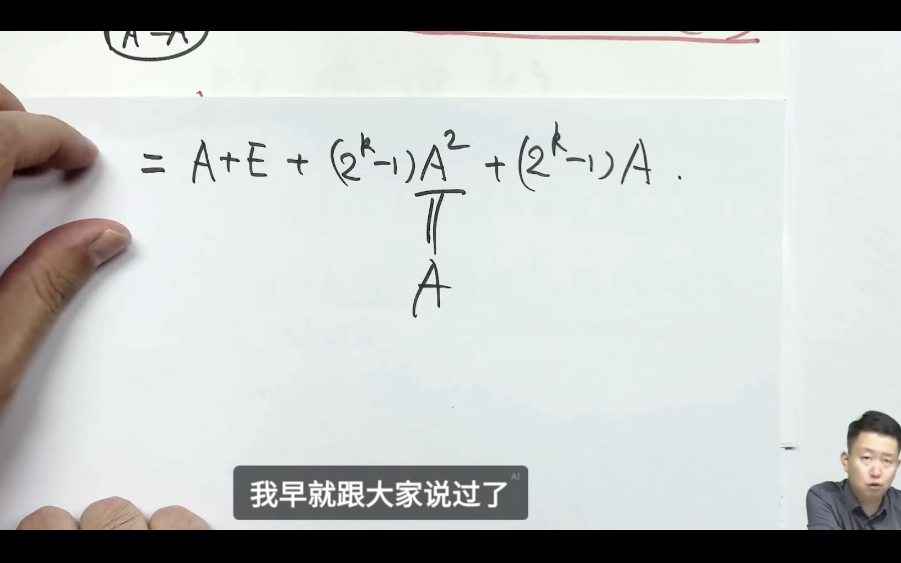 A²=A
= A+E + (2^k-1)A² + (2^k-1)A .
||
A
我早就跟大家说过了
AI